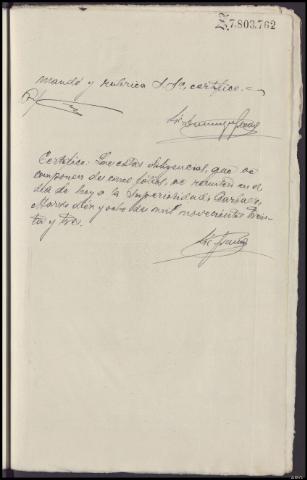 Z,7.803.762
mandó y rubrica S.Sª, certifico.
Certifico: Que estas diligencias, que se
componen de cinco folios, se remiten en el
día de hoy a la Superioridad.
Marzo diez y ocho de mil novecientos trein-
ta y tres.